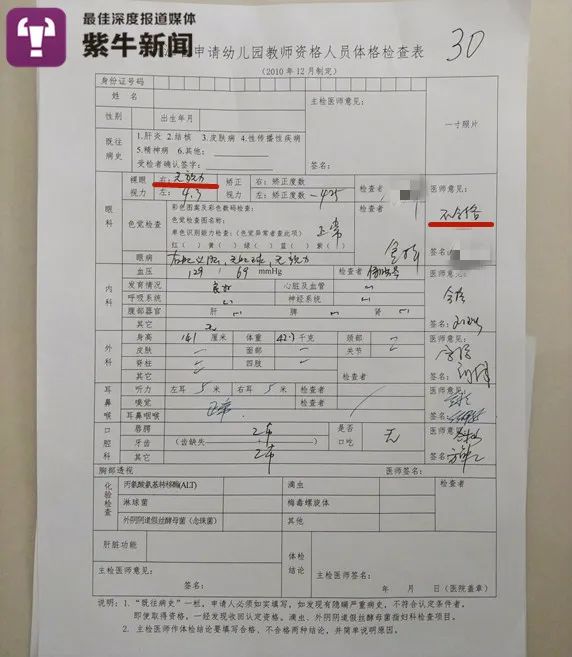 最佳深度报道媒体
紫牛新闻
申请幼儿园教师资格人员体格检查表
30
(2010年12月制定)
身份证号码
姓名
主检医师意见:
一寸照片
性别
出生年月
既往病史
1.肝炎 2.结核 3.皮肤病 4.性传播性疾病
5.精神病 6.其他:
受检者确认签字:
签名:
眼科
裸眼视力
右: 无视力
左: 4.3
矫正视力
右: 矫正度数
左: 矫正度数 -4.25
检查者
医师意见:
不合格
色觉检查
彩色图案及彩色数码检查:
色觉检查图名称:
正常
单色识别能力检查:(色觉异常者查此项)
红( ) 黄( ) 绿( ) 蓝( ) 紫( )
签名:
眼病
无视力
内科
血压
129 / 69 mmHg
检查者
医师意见:
合格
发育情况
良好
心脏及血管
呼吸系统
神经系统
腹部器官
肝
脾
肾
其它
无
签名:
外科
身高
141 厘米
体重
千克
颈部
医师意见:
合格
皮肤
面部
关节
脊柱
四肢
其它
检查者
签名:
耳鼻喉
听力
左耳 5 米
右耳 5 米
检查者
医师意见:
嗅觉
检查者
耳鼻咽喉
正常
签名:
口腔科
唇腭
正常
是否口吃
无
医师意见:
牙齿
(齿缺失 + )
正常
签名:
胸部透视
医师签名:
化验检查
丙氨酸氨基转移酶(ALT)
滴虫
检查者
淋球菌
梅毒螺旋体
外阴阴道假丝酵母菌(念珠菌)
其他
肝脏功能
体检结论
主检医师意见:
签名:
年 月 日(医院盖章)
说明:1.“既往病史”一栏,申请人必须如实填写,如发现有隐瞒严重病史,不符合认定条件者,
即使取得资格,一经发现收回认定资格。滴虫、外阴阴道假丝酵母菌指妇科检查项目。
2.主检医师作体检结论要填写合格、不合格两种结论,并简单说明原因。